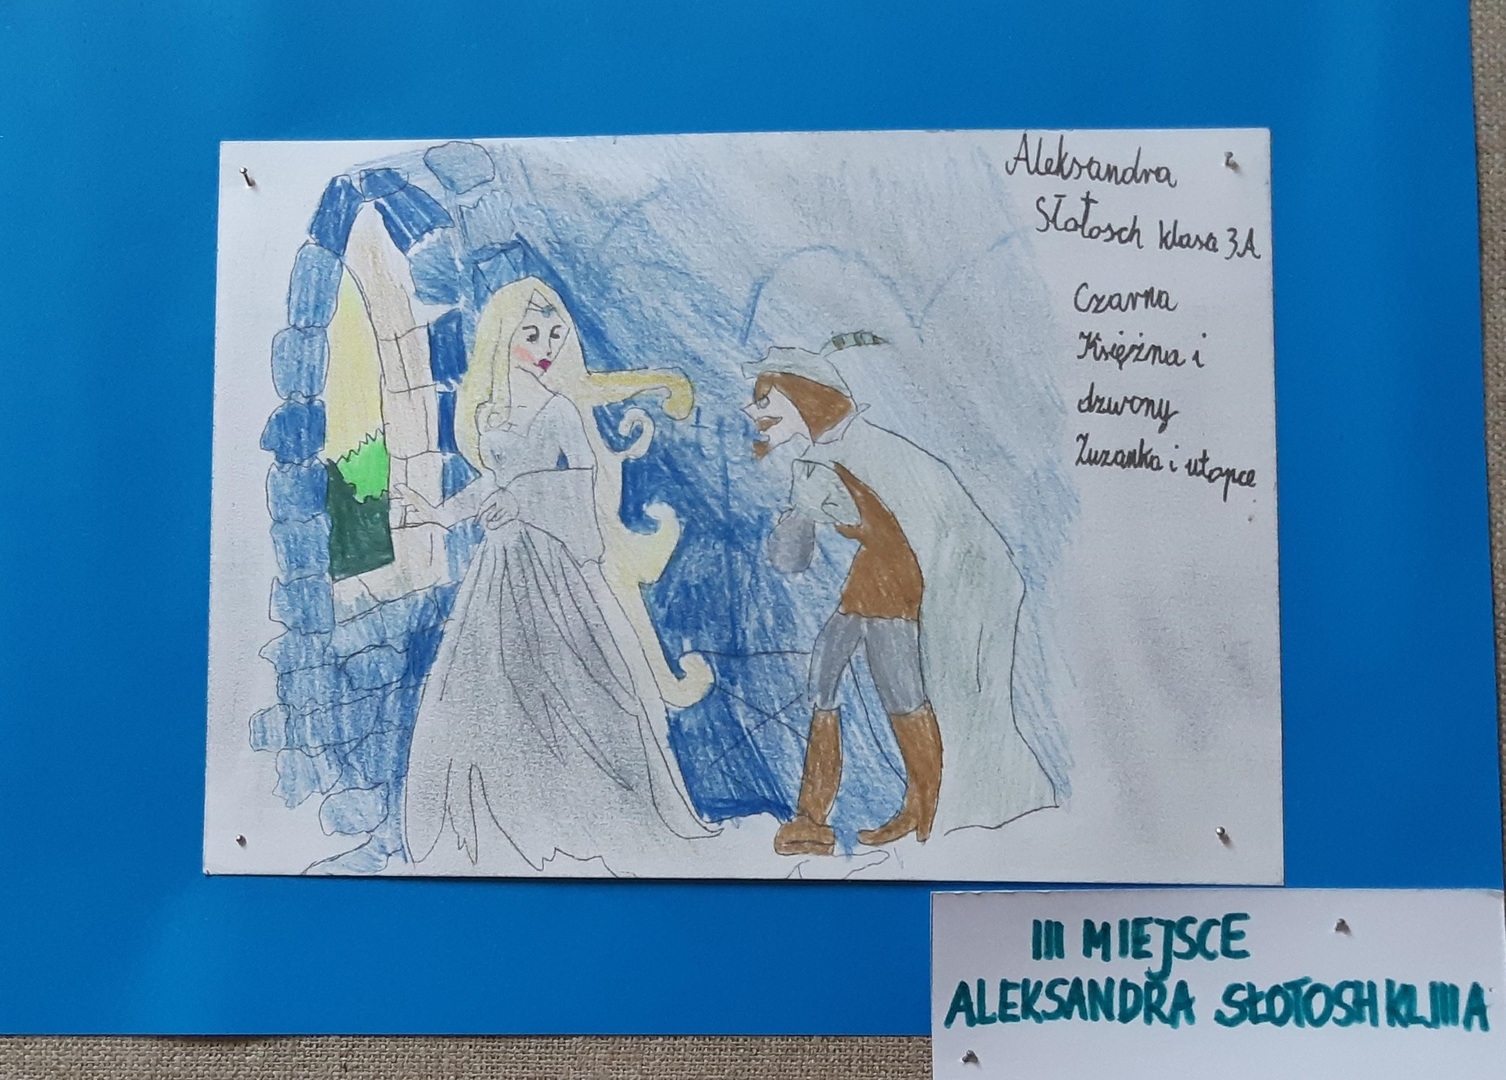 Aleksandra
Słotosch klasa 3A
Czarna
Księżna i
dzwony
Zuzanka i utopce
III MIEJSCE
ALEKSANDRA SŁOTOSH KL III A